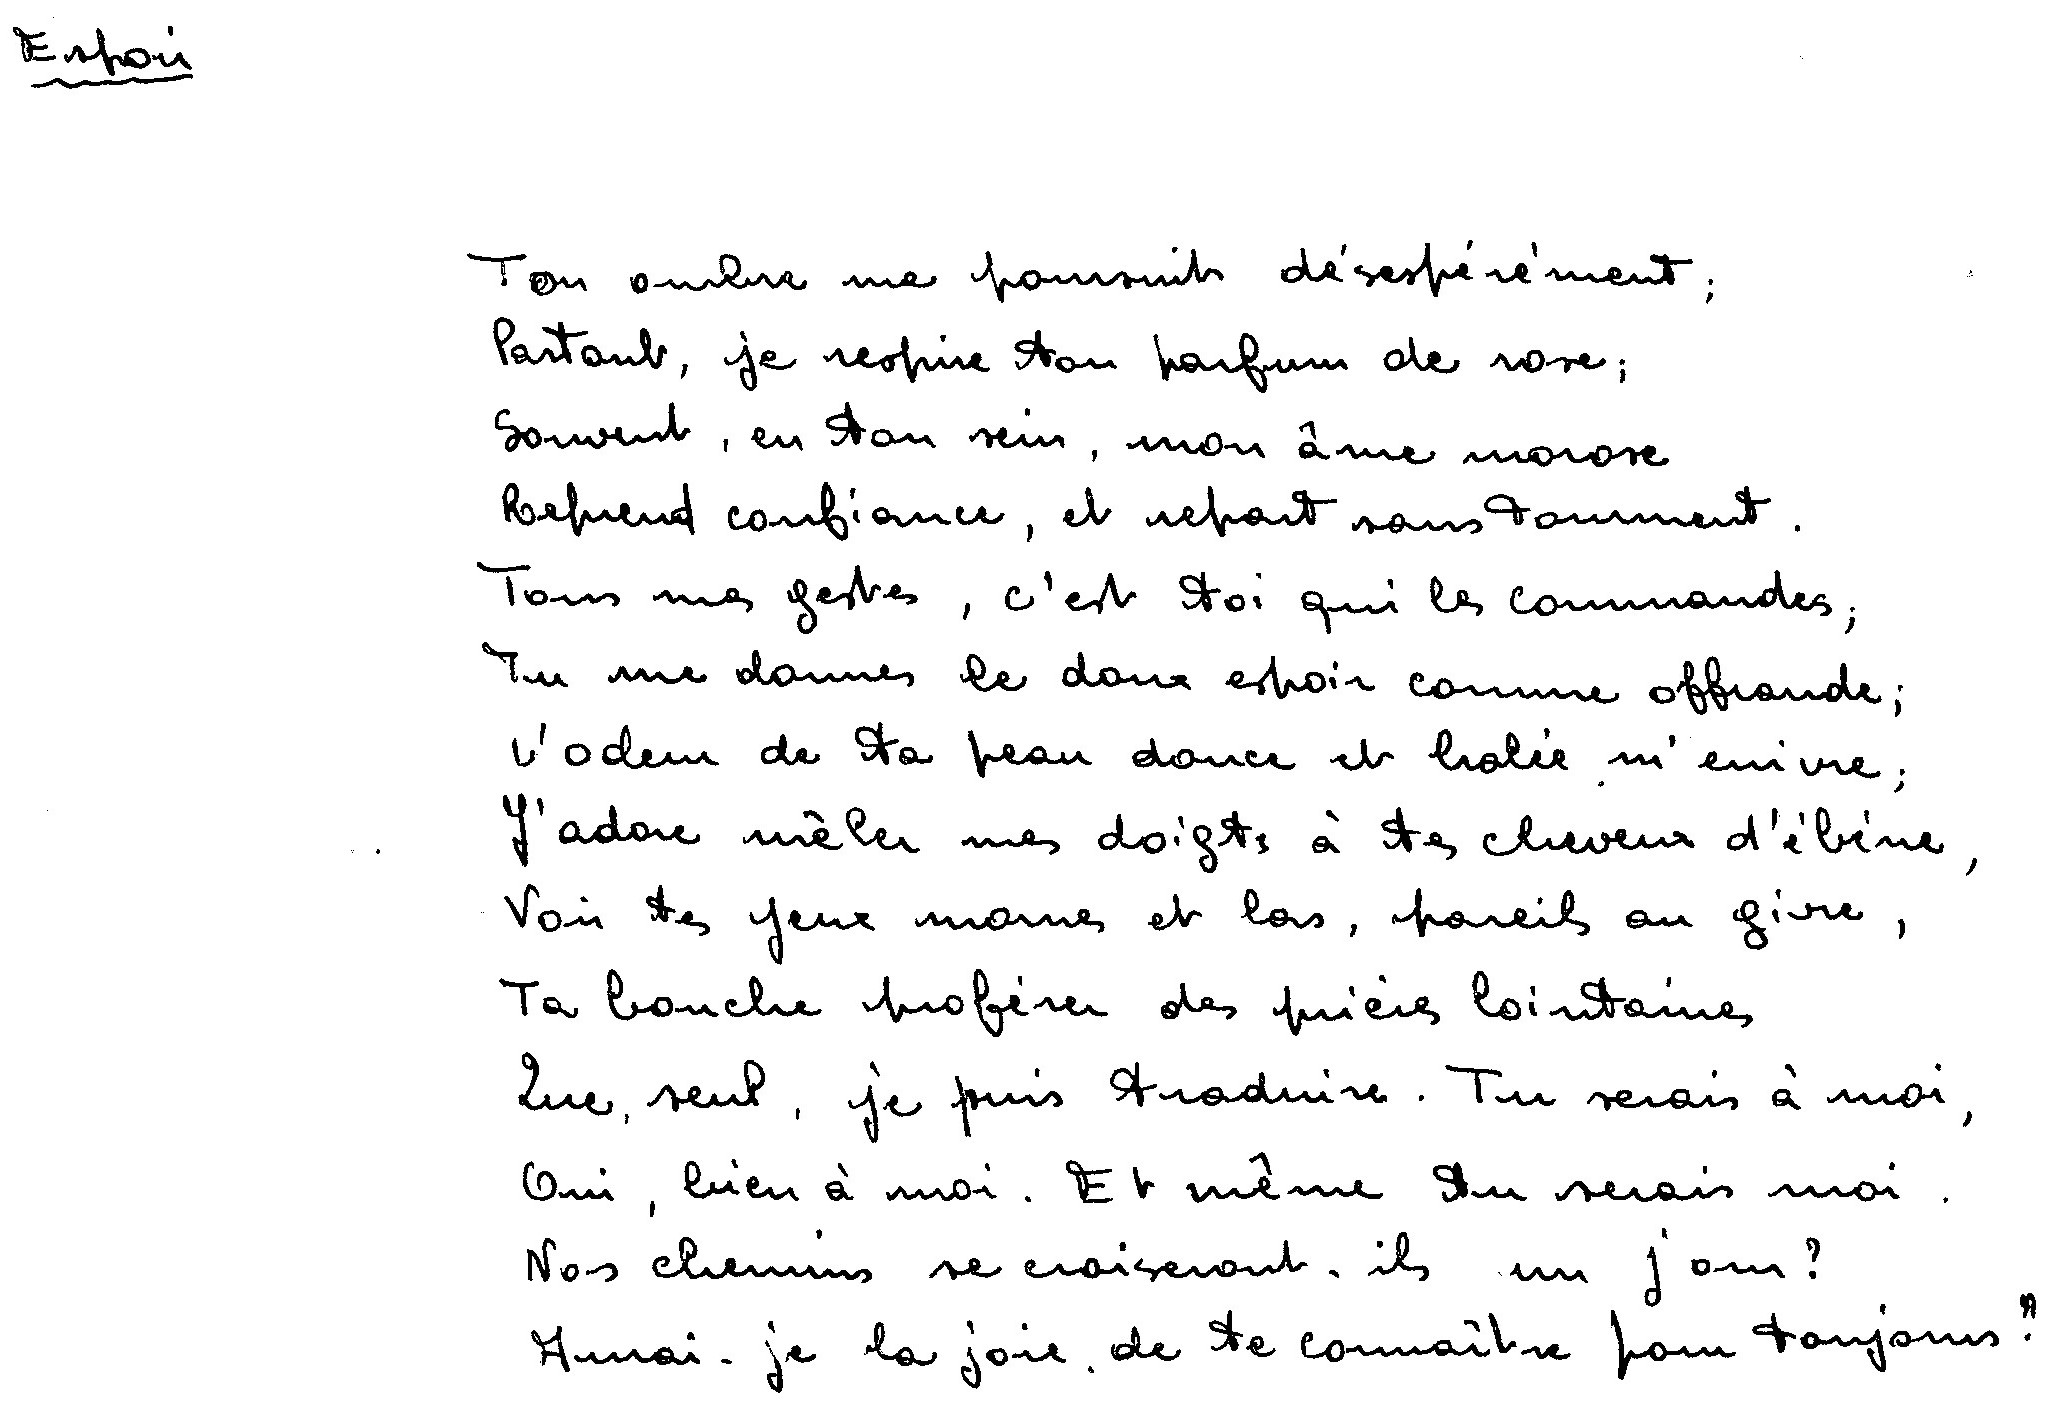 Espoir
Ton ombre me poursuit désespérément ;
Partout, je respire ton parfum de rose ;
Souvent, en ton sein, mon âme morose
Reprend confiance, et repart sans tourment.
Tous mes gestes, c'est toi qui les commandes ;
Tu me donnes le doux espoir comme offrande ;
L'odeur de ta peau douce et halée m'enivre ;
J'adore mêler mes doigts à tes cheveux d'ébène,
Voir tes yeux mornes et las, pareils au givre,
Ta bouche proférer des prières lointaines
Que, seul, je puis traduire. Tu serais à moi,
Oui, bien à moi. Et même tu serais moi.
Nos chemins se croiseront-ils un jour ?
Aurai-je la joie de te connaître pour toujours ?